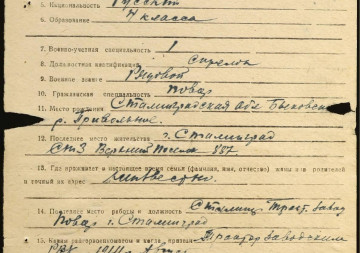 5. Национальность Русский
6. Образование 4 класса
7. Военно-учетная специальность 1
8. Должностная квалификация стрелок
9. Военное звание Рядовой
10. Гражданская специальность Повар
11. Место рождения Сталинградская обл Быковский
с. Привольное
12. Последнее место жительства г. Сталинград
СТЗ Верхний Поселок 887
13. Где проживает в настоящее время семья (фамилия, имя, отчество) жены или родителей
и точный их адрес
14. Последнее место работы и должность Сталинг. Тракт. завод
Повар г. Сталинград
15. Каким райгорвоенкоматом и когда призван Тракторозаводским
РВК 1941